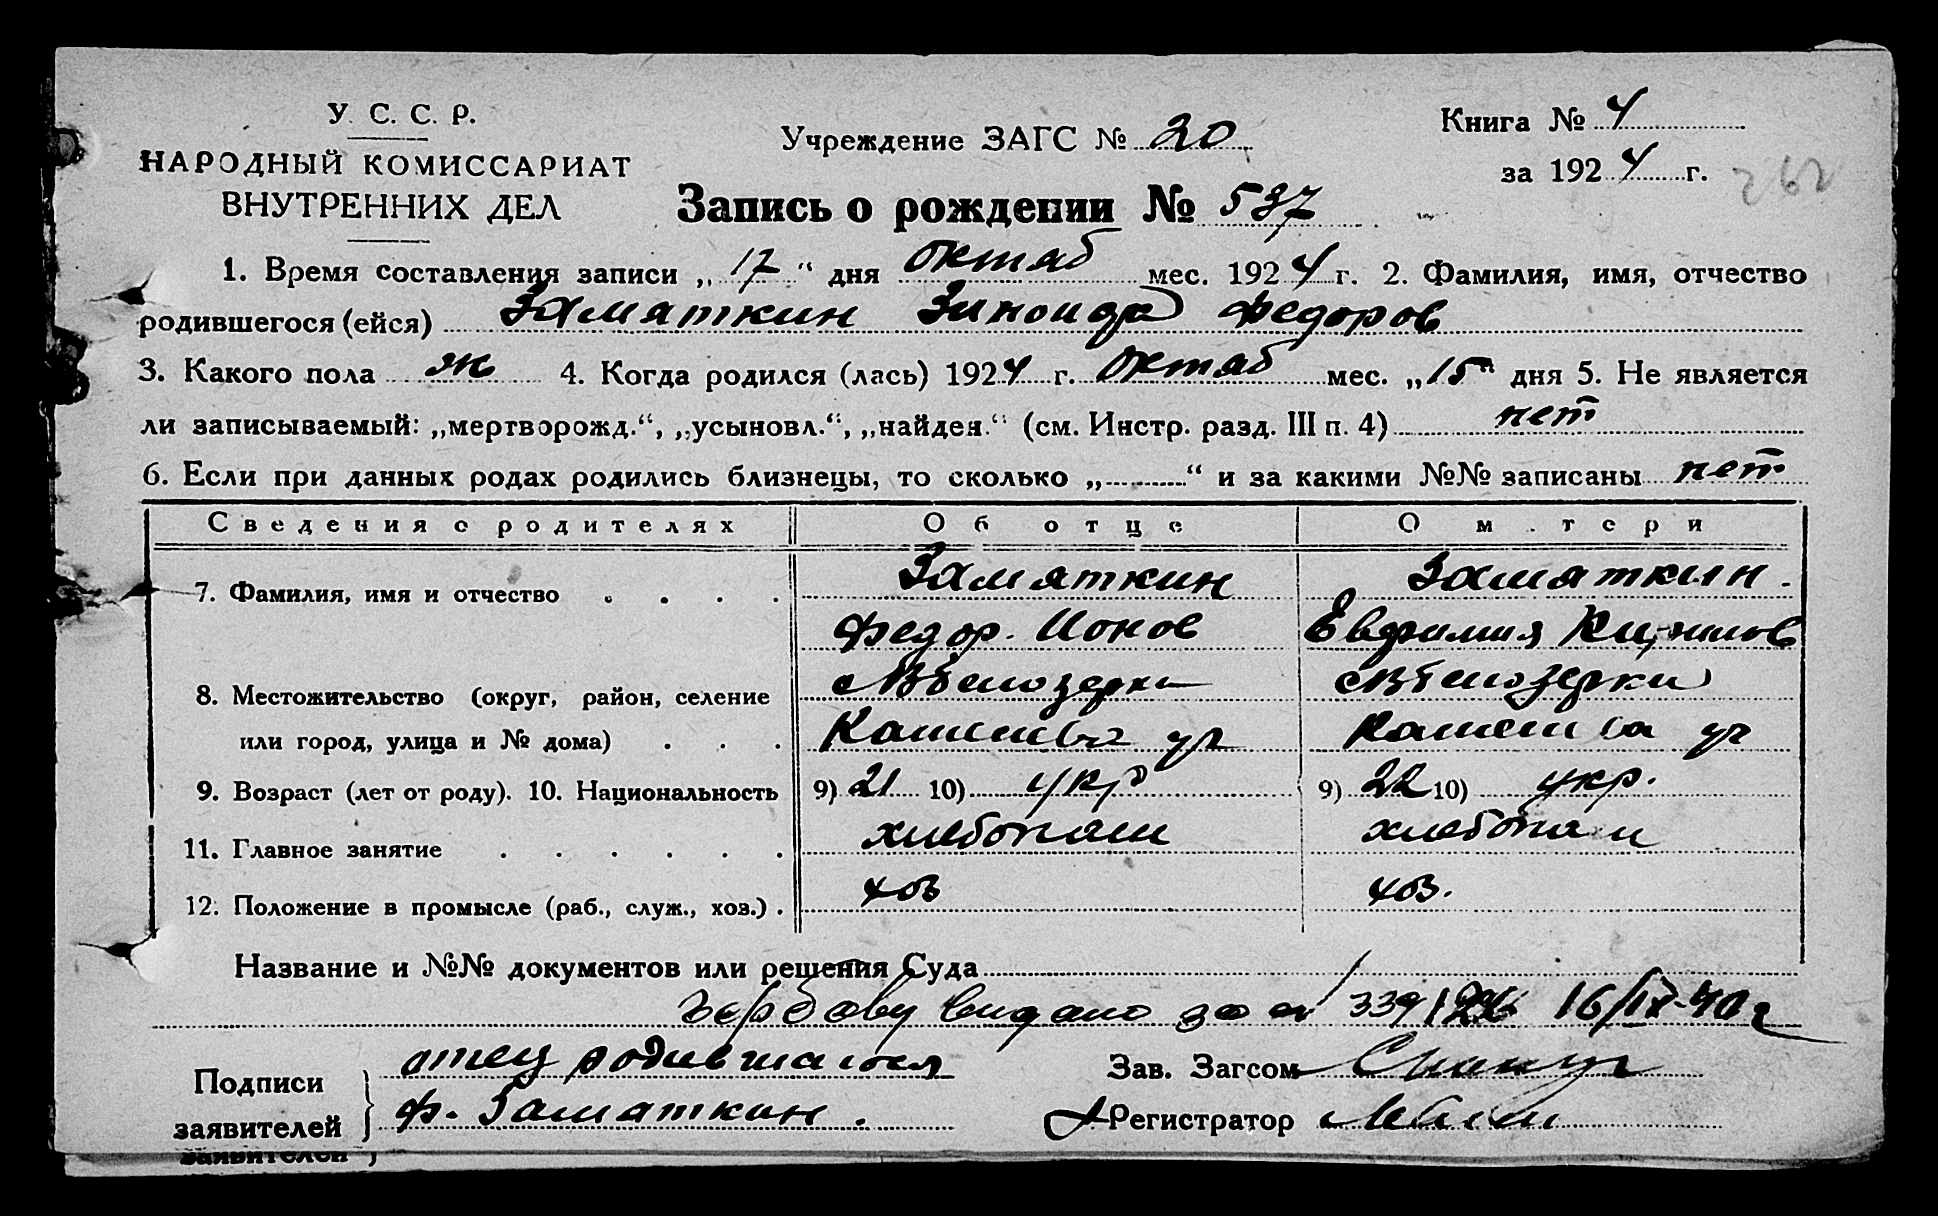 У. С. С. Р.
НАРОДНЫЙ КОМИССАРИАТ
ВНУТРЕННИХ ДЕЛ
Учреждение ЗАГС № 20
Книга № 4
за 1924 г.
262
Запись о рождении № 537
1. Время составления записи „17“ дня октяб мес. 1924 г. 2. Фамилия, имя, отчество
родившегося (ейся) Замяткин Зиноида Федоров
3. Какого пола ж 4. Когда родился (лась) 1924 г. октяб мес. „15“ дня 5. Не является
ли записываемый: „мертворожд.“, „усыновл.“, „найден.“ (см. Инстр. разд. III п. 4) нет
6. Если при данных родах родились близнецы, то сколько „ “ и за какими №№ записаны нет
Сведения о родителях Об отце О матери
7. Фамилия, имя и отчество Замяткин Замяткин.
Федор. Ионов Евфимия
8. Местожительство (округ, район, селение
или город, улица и № дома)
9. Возраст (лет от роду). 10. Национальность 9) 21 10) укр 9) 22 10) укр.
11. Главное занятие хлебопаш хлебопаш
12. Положение в промысле (раб., служ., хоз.) хоз хоз.
Название и №№ документов или решения Суда
выдано за № 339126 16/IX-40 г
Подписи
заявителей
отец родившагося
Ф. Замяткин.
Зав. Загсом
Регистратор
заявителей